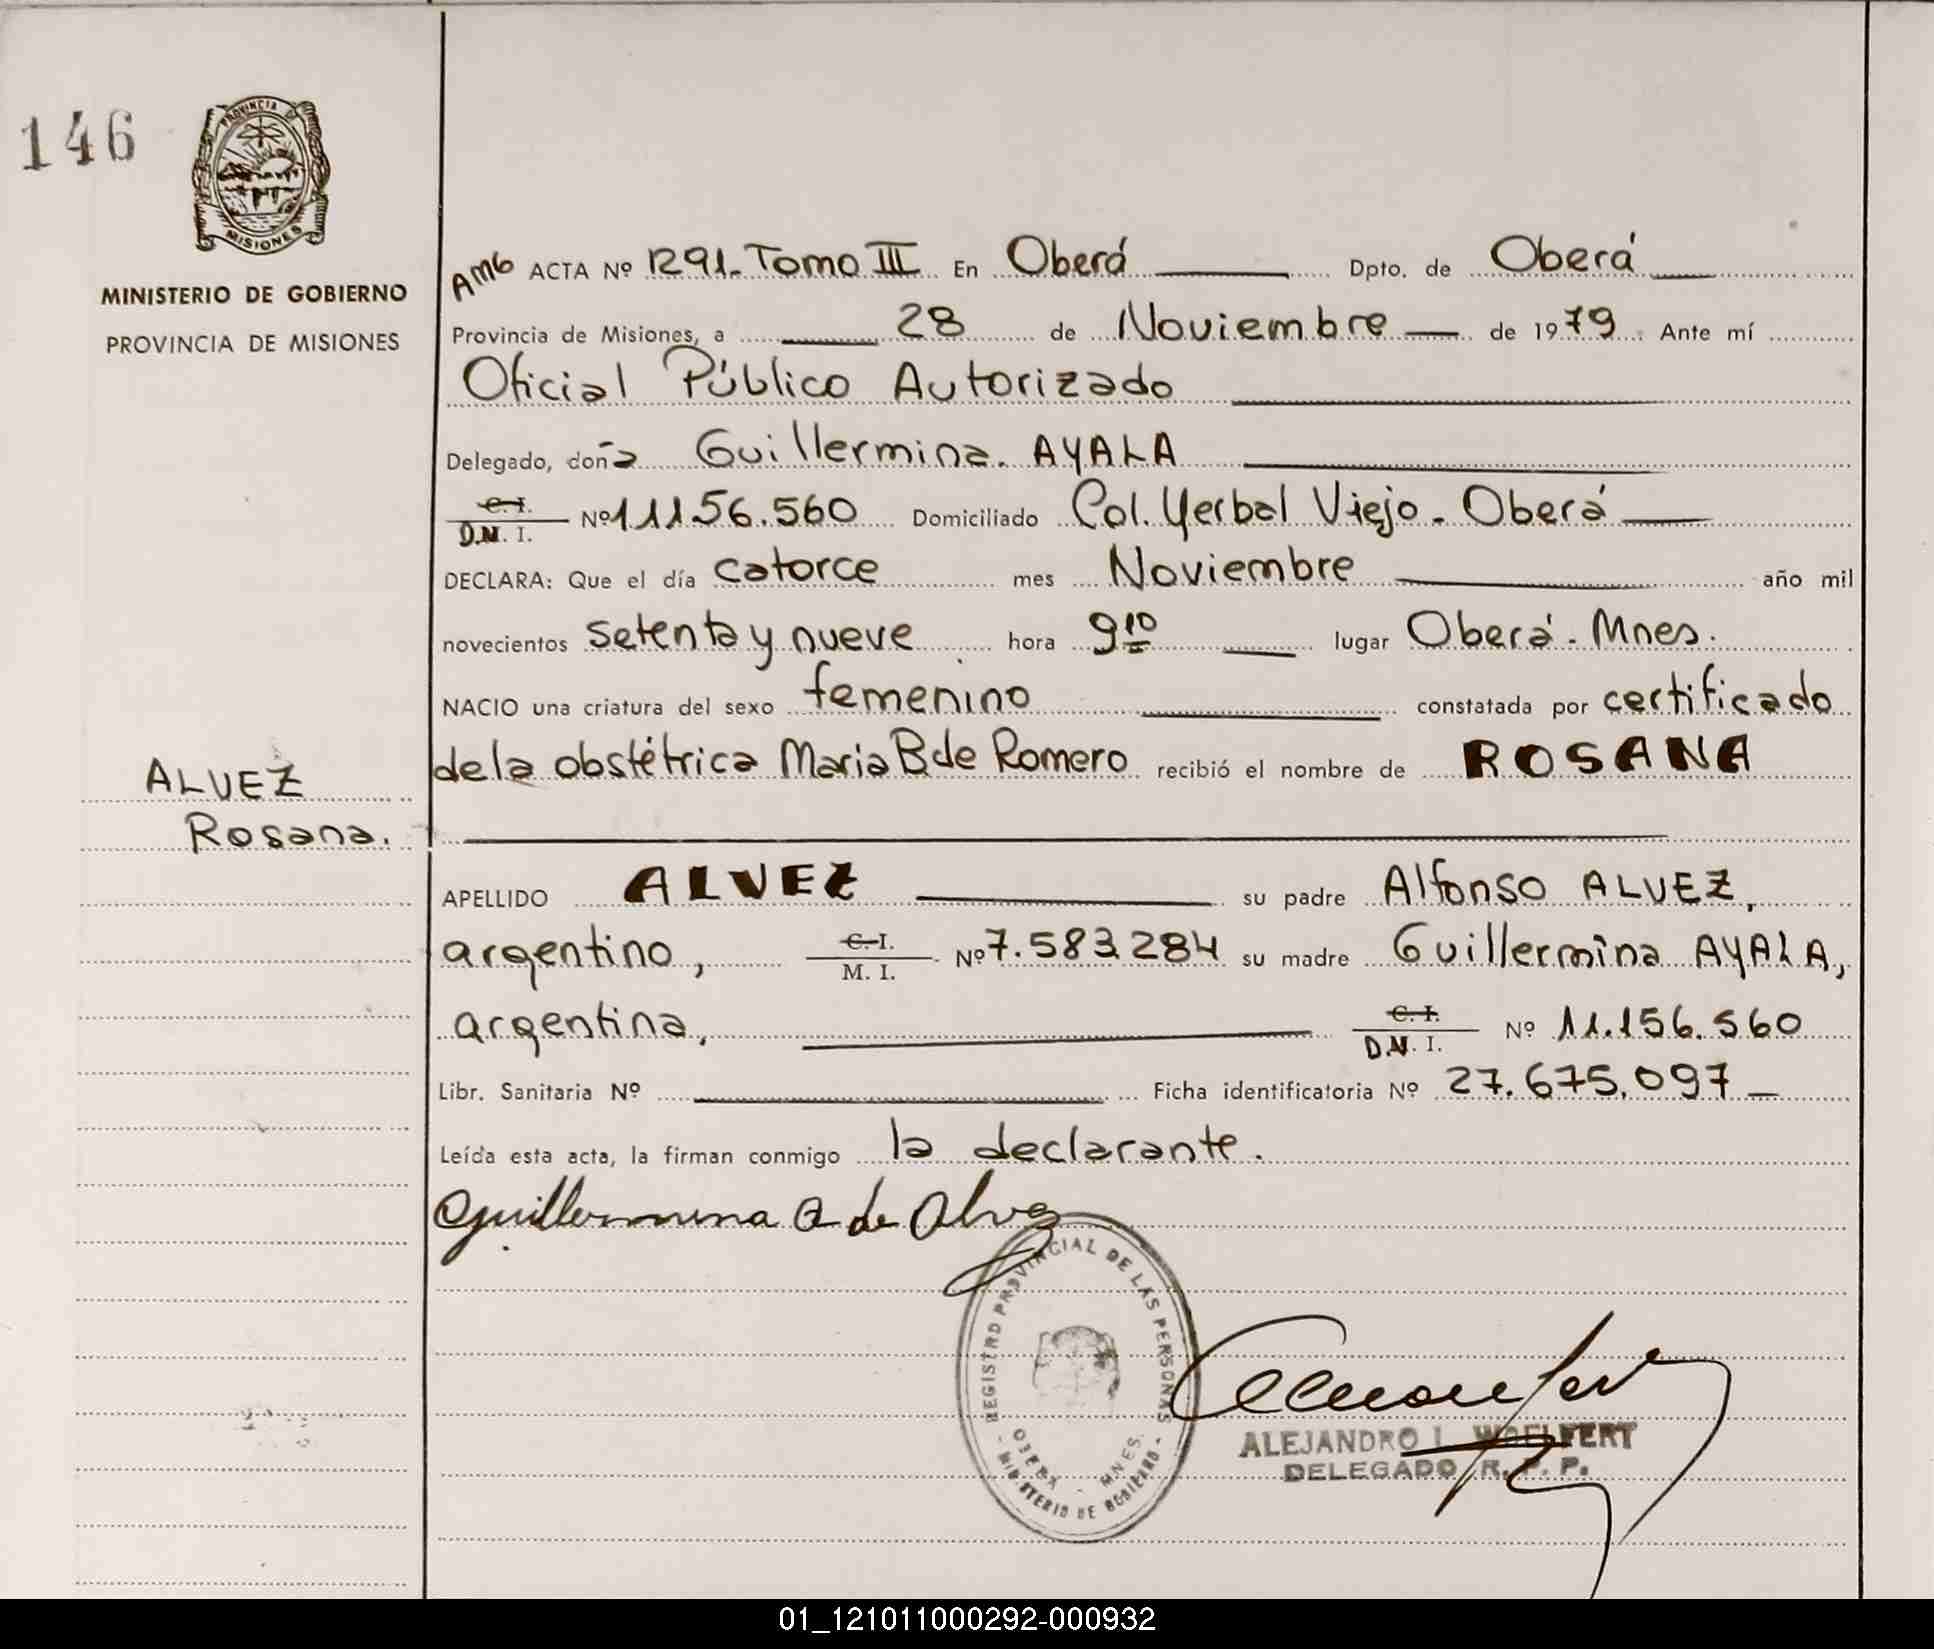 146
PROVINCIA DE
MISIONES
MINISTERIO DE GOBIERNO
PROVINCIA DE MISIONES
ALVEZ
Rosana.
AMG ACTA Nº 1291. Tomo III En Oberá Dpto. de Oberá
Provincia de Misiones, a 28 de Noviembre de 1979. Ante mí
Oficial Público Autorizado
Delegado, doña Guillermina. AYALA
C. I.
D.N. I. Nº 11156.560 Domiciliado Col. Yerbal Viejo. Oberá
DECLARA: Que el día catorce mes Noviembre año mil
novecientos setenta y nueve hora 9 10 lugar Oberá. Mnes.
NACIO una criatura del sexo femenino constatada por certificado
de la obstétrica Maria B de Romero recibió el nombre de ROSANA
APELLIDO ALVEZ su padre Alfonso ALVEZ,
argentino, C. I.
M. I. Nº 7.583.284 su madre Guillermina AYALA,
argentina, C. I.
D.N. I. Nº 11.156.560
Libr. Sanitaria Nº Ficha identificatoria Nº 27.675.097
Leída esta acta, la firman conmigo la declarante.
Guillermina A de Alvez
REGISTRO PROVINCIAL DE LAS PERSONAS
OBERA - MNES.
MINISTERIO DE GOBIERNO
ALEJANDRO L. WOELFERT
DELEGADO R. P. P.
01_121011000292-000932